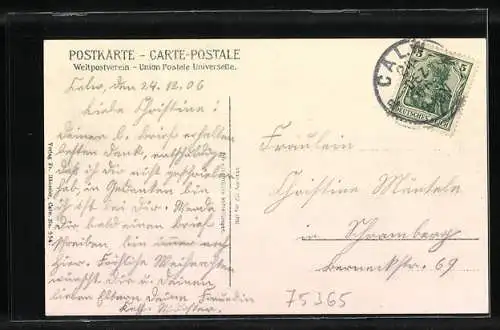 POSTKARTE – CARTE-POSTALE
Weltpostverein – Union Postale Universelle.
Calw, den 24.12.06
Liebe Christine!
Deinen l. Brief erhalten
besten Dank, entschuldige
daß ich dir nicht geschrieben
hab, in Gedanken bin
ich bei Dir. Werde
Dir bald einen Brief
schreiben bin immer noch
hier. Fröhliche Weihnachten
wünscht Dir u. Deinen
lieben Eltern Deine Freundin
CALW
5
DEUTSCHES REICH
Fräulein
Christine
in Schramberg
Berneckstr. 69
75365